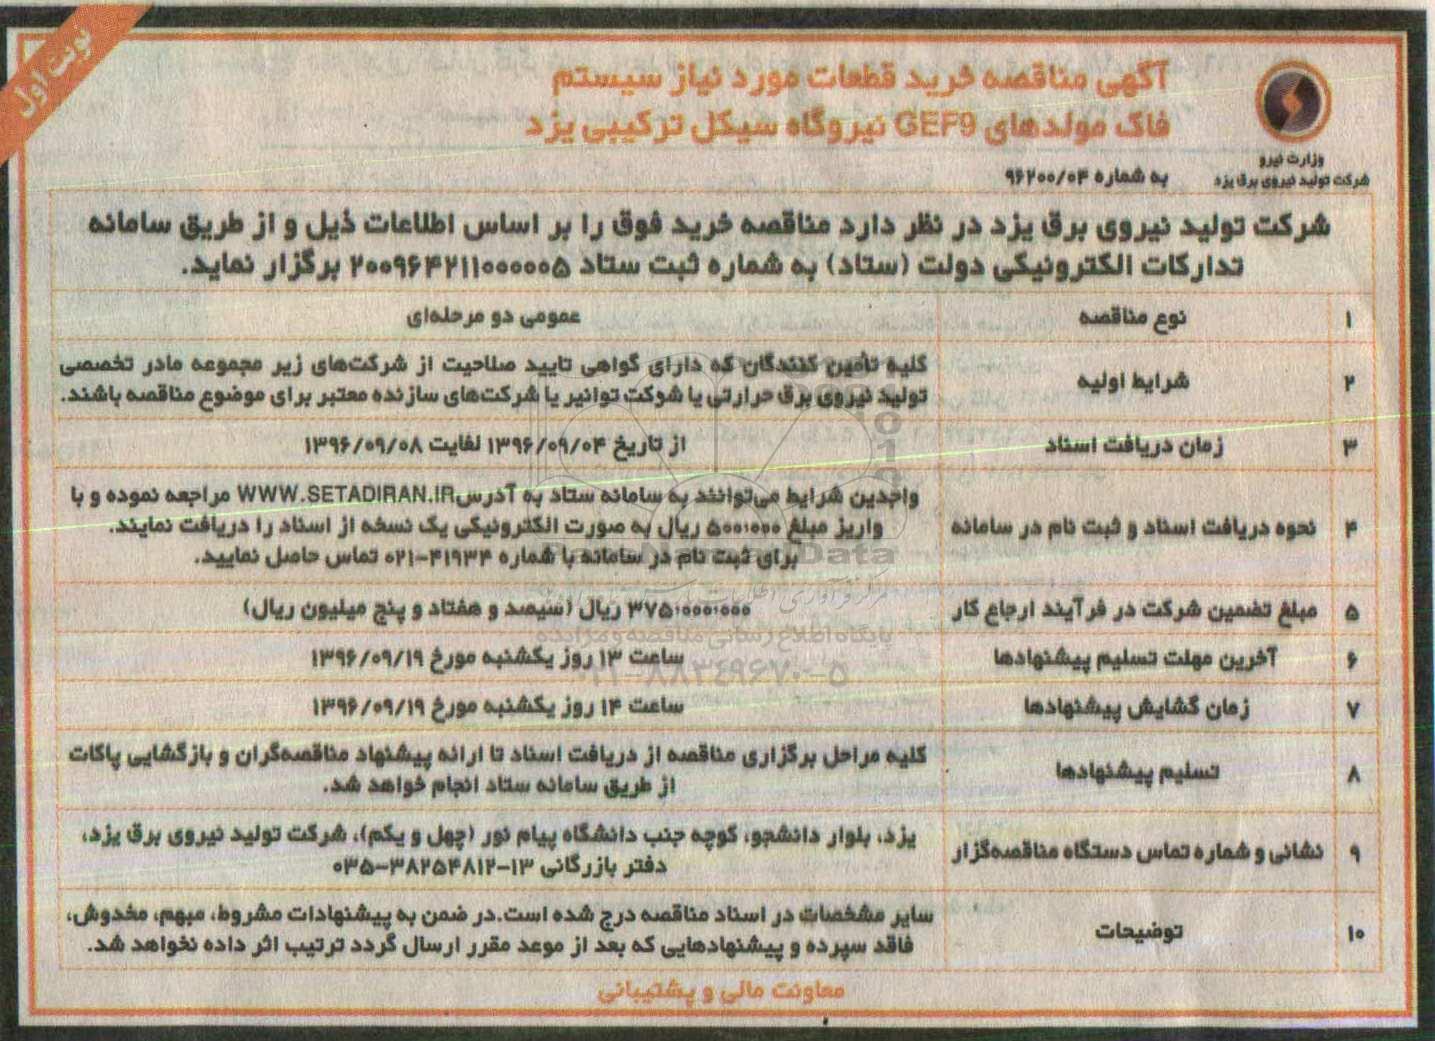 نوبت اول
آگهی مناقصه خرید قطعات مورد نیاز سیستم
فاگ مولدهای GEF9 نیروگاه سیکل ترکیبی یزد
وزارت نیرو
شرکت تولید نیروی برق یزد
به شماره ۹۶۲۰۰/۰۴
شرکت تولید نیروی برق یزد در نظر دارد مناقصه خرید فوق را بر اساس اطلاعات ذیل و از طریق سامانه
تدارکات الکترونیکی دولت (ستاد) به شماره ثبت ستاد ۲۰۰۹۶۴۲۱۱۰۰۰۰۰۵ برگزار نماید.
۱ نوع مناقصه عمومی دو مرحله‌ای
۲ شرایط اولیه کلیه تأمین کنندگان که دارای گواهی تایید صلاحیت از شرکت‌های زیر مجموعه مادر تخصصی
تولید نیروی برق حرارتی یا شرکت توانیر یا شرکت‌های سازنده معتبر برای موضوع مناقصه باشند.
۳ زمان دریافت اسناد از تاریخ ۱۳۹۶/۰۹/۰۴ لغایت ۱۳۹۶/۰۹/۰۸
۴ نحوه دریافت اسناد و ثبت نام در سامانه واجدین شرایط می‌توانند به سامانه ستاد به آدرس WWW.SETADIRAN.IR مراجعه نموده و با
واریز مبلغ ۵۰۰،۰۰۰ ریال به صورت الکترونیکی یک نسخه از اسناد را دریافت نمایند.
برای ثبت نام در سامانه با شماره ۴۱۹۳۴-۰۲۱ تماس حاصل نمایید.
۵ مبلغ تضمین شرکت در فرآیند ارجاع کار ۳۷۵،۰۰۰،۰۰۰ ریال (سیصد و هفتاد و پنج میلیون ریال)
۶ آخرین مهلت تسلیم پیشنهادها ساعت ۱۳ روز یکشنبه مورخ ۱۳۹۶/۰۹/۱۹
۷ زمان گشایش پیشنهادها ساعت ۱۴ روز یکشنبه مورخ ۱۳۹۶/۰۹/۱۹
۸ تسلیم پیشنهادها کلیه مراحل برگزاری مناقصه از دریافت اسناد تا ارائه پیشنهاد مناقصه‌گران و بازگشایی پاکات
از طریق سامانه ستاد انجام خواهد شد.
۹ نشانی و شماره تماس دستگاه مناقصه‌گزار یزد، بلوار دانشجو، کوچه جنب دانشگاه پیام نور (چهل و یکم)، شرکت تولید نیروی برق یزد،
دفتر بازرگانی ۱۳-۳۸۲۵۴۸۱۲-۰۳۵
۱۰ توضیحات سایر مشخصات در اسناد مناقصه درج شده است.در ضمن به پیشنهادات مشروط، مبهم، مخدوش،
فاقد سپرده و پیشنهادهایی که بعد از موعد مقرر ارسال گردد ترتیب اثر داده نخواهد شد.
معاونت مالی و پشتیبانی
پایگاه اطلاع رسانی مناقصه و مزایده
۰۲۱-۸۸۳۴۹۶۷۰-۵